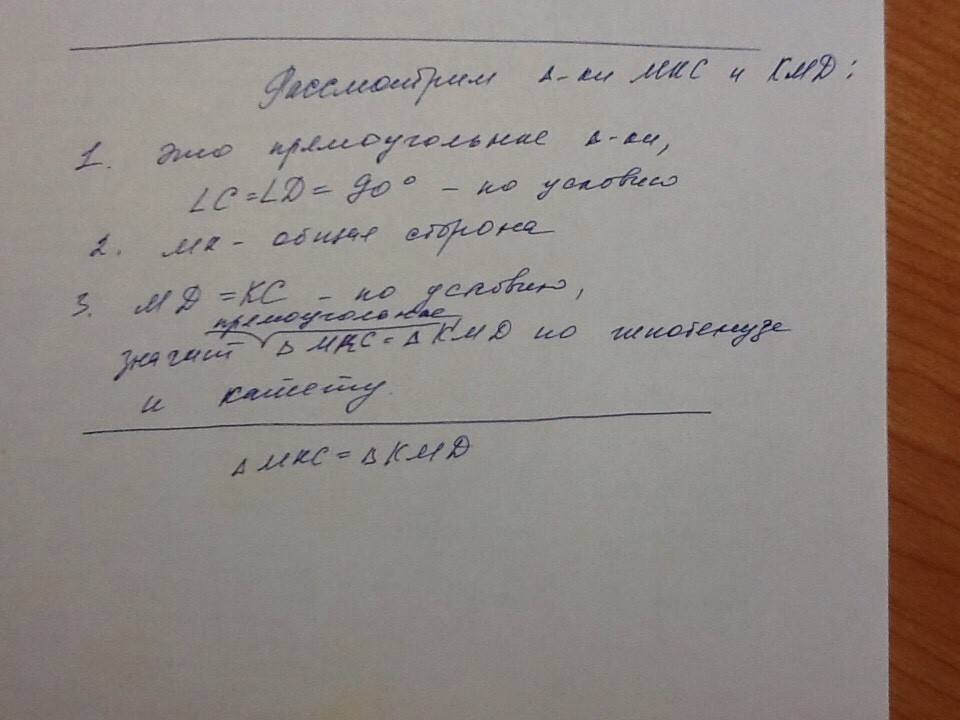 Рассмотрим Δ-ки МКС и КМD:
1. Это прямоугольные Δ-ки,
∠C=∠D=90° - по условию
2. МК - общая сторона
3. МD=КС - по условию,
прямоугольные
значит Δ МКС = Δ КМD по гипотенузе
и катету.
Δ МКС = Δ КМD